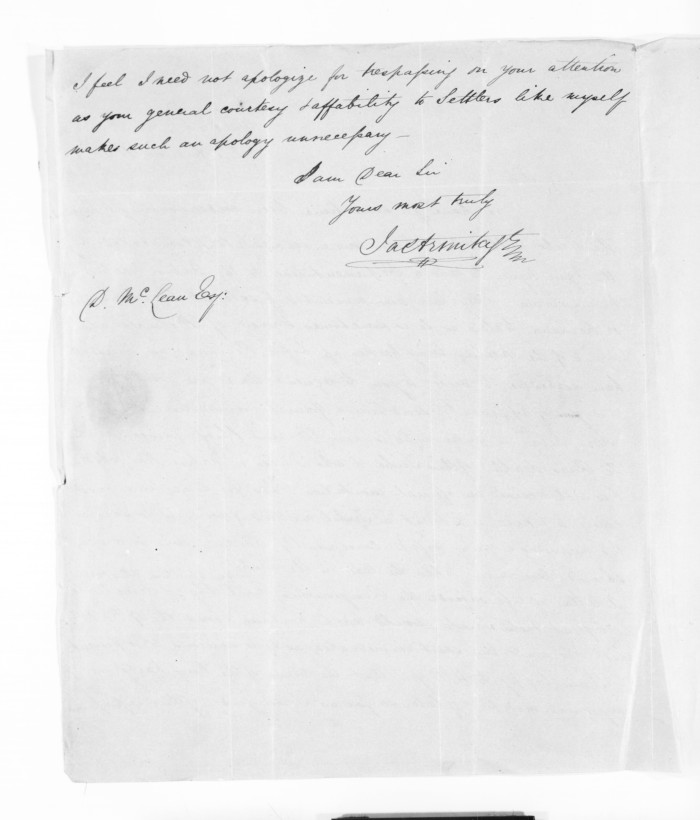 I feel I need not apologize for trespassing on your attention
as your general courtesy & affability to Settlers like myself
makes such an apology unnecessary —
I am Dear Sir
Yours most truly
Jas Armitage
D. McLean Esq: